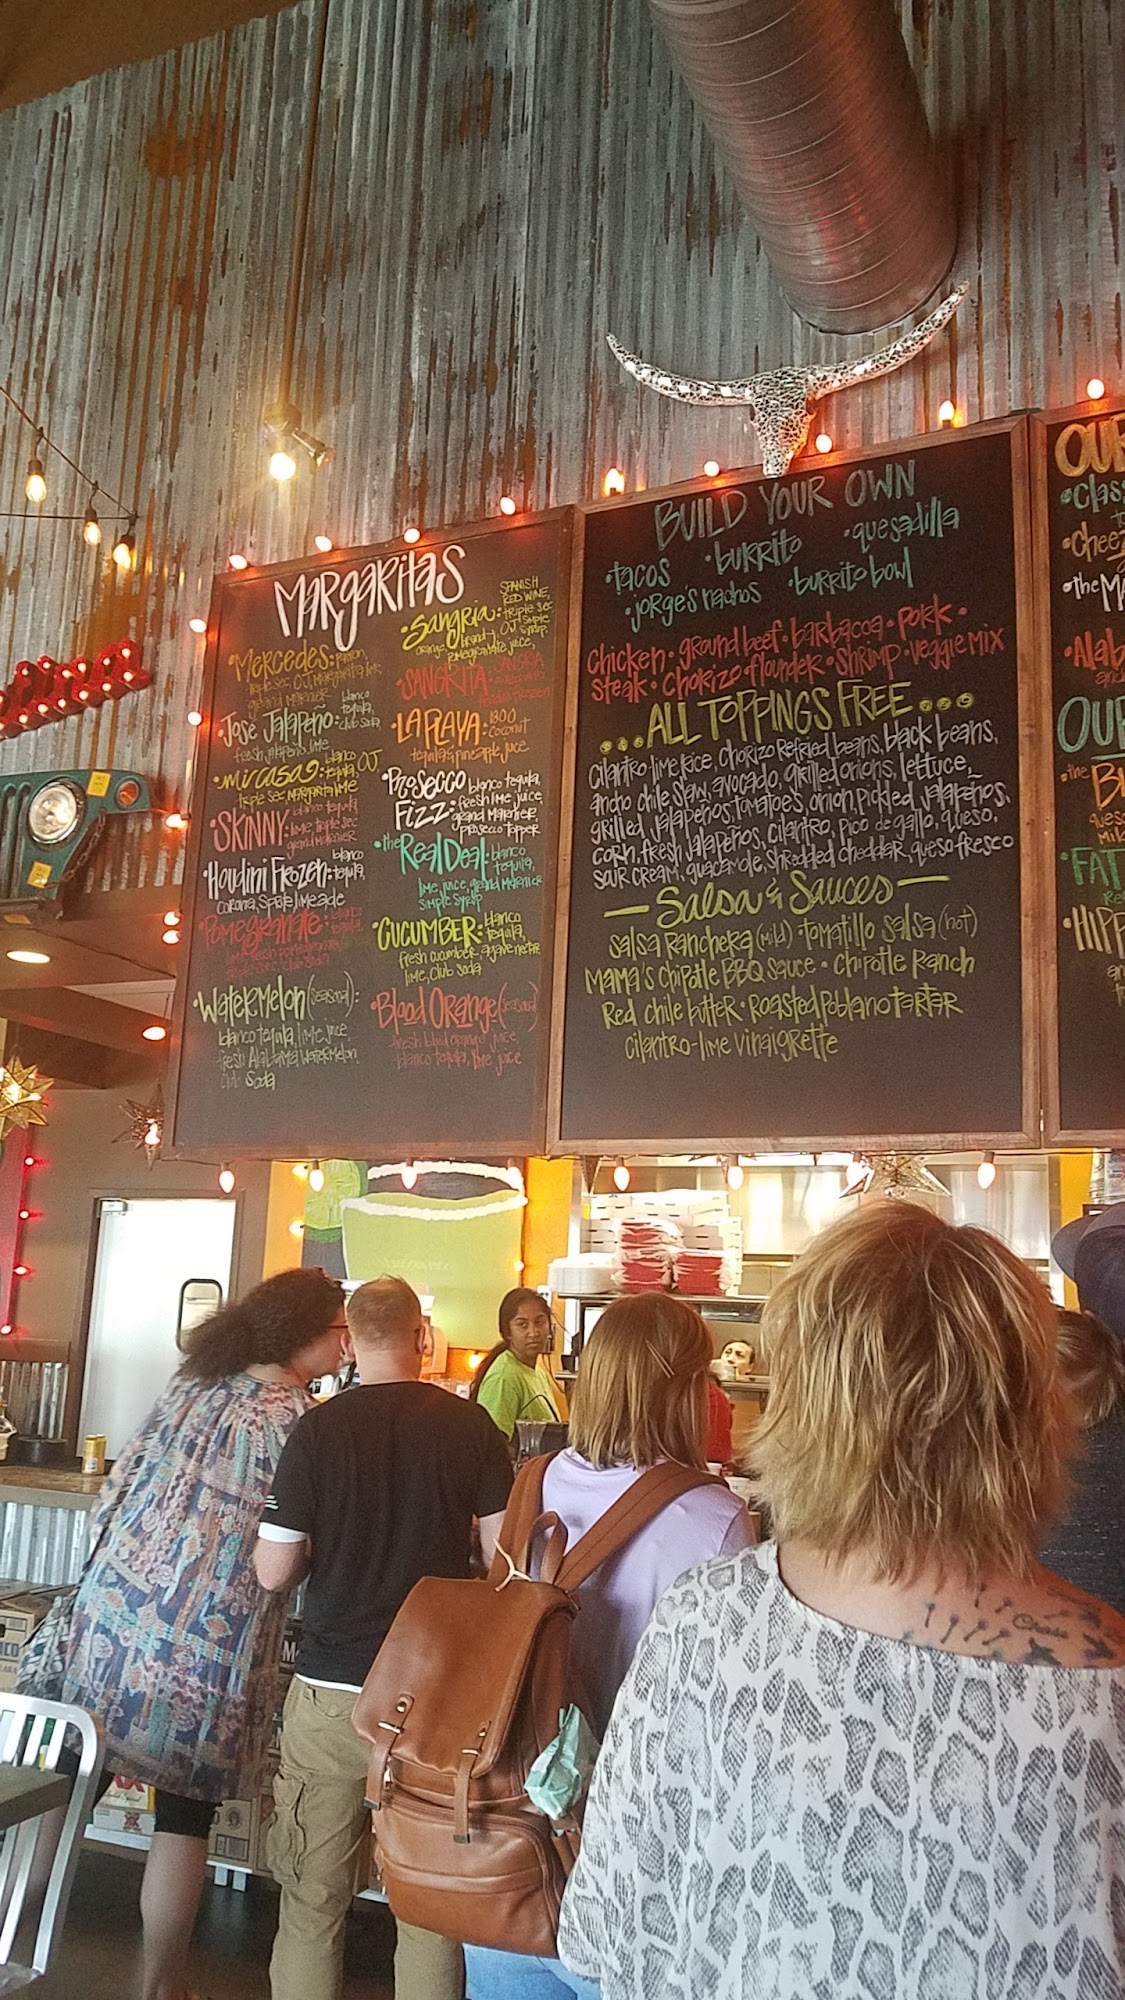 MARGARITAS
•MERCEDES:
triple sec, OJ, margarita mix,
grand marnier
•José Jalapeño: blanco
tequila,
club soda,
fresh jalapeño, lime
•mi casa: blanco
tequila, OJ
triple sec, margarita lime
•SKINNY: blanco tequila
lime, triple sec
grand marnier
•Houdini Frozen: blanco
tequila,
corona, sprite, limeade
•Pomegranate: blanco
tequila,
triple sec, club soda
•Watermelon (seasonal):
blanco tequila, lime juice
fresh Alabama watermelon,
club soda
•Sangria: SPANISH
RED WINE,
triple sec
OJ, simple
syrup,
orange, brandy,
pomegranate juice,
•SANGRITA: SANGRIA
•LA PLAYA: 1800
coconut
tequila & pineapple juice
•Prosecco
Fizz: blanco tequila,
fresh lime juice,
grand marnier,
prosecco topper
•the Real Deal: blanco
tequila,
lime juice, grand marnier
simple syrup
•CUCUMBER: blanco
tequila,
fresh cucumber, agave nectar
lime, club soda
•Blood Orange (seasonal)
fresh blood orange juice,
blanco tequila, lime juice
BUILD YOUR OWN
•tacos •burrito •quesadilla
•jorge's nachos •burrito bowl
Chicken • ground beef • barbacoa • pork •
steak • chorizo • flounder • shrimp • veggie mix
...ALL TOPPINGS FREE...
cilantro-lime rice, chorizo refried beans, black beans,
ancho chile slaw, avocado, grilled onions, lettuce,
grilled jalapeños, tomatoes, onion, pickled jalapeños,
corn, fresh jalapeños, cilantro, pico de gallo, queso,
sour cream, guacamole, shredded cheddar, queso fresco
— Salsa & Sauces —
salsa ranchera (mild) • tomatillo salsa (hot)
Mama's chipotle BBQ sauce • chipotle ranch
Red chile butter • roasted poblano tartar
cilantro-lime vinaigrette
OUR
•Class
•Cheez
•the MA
•Alab
OUR
•the
B
queso
mil
•FAT
•HIPP